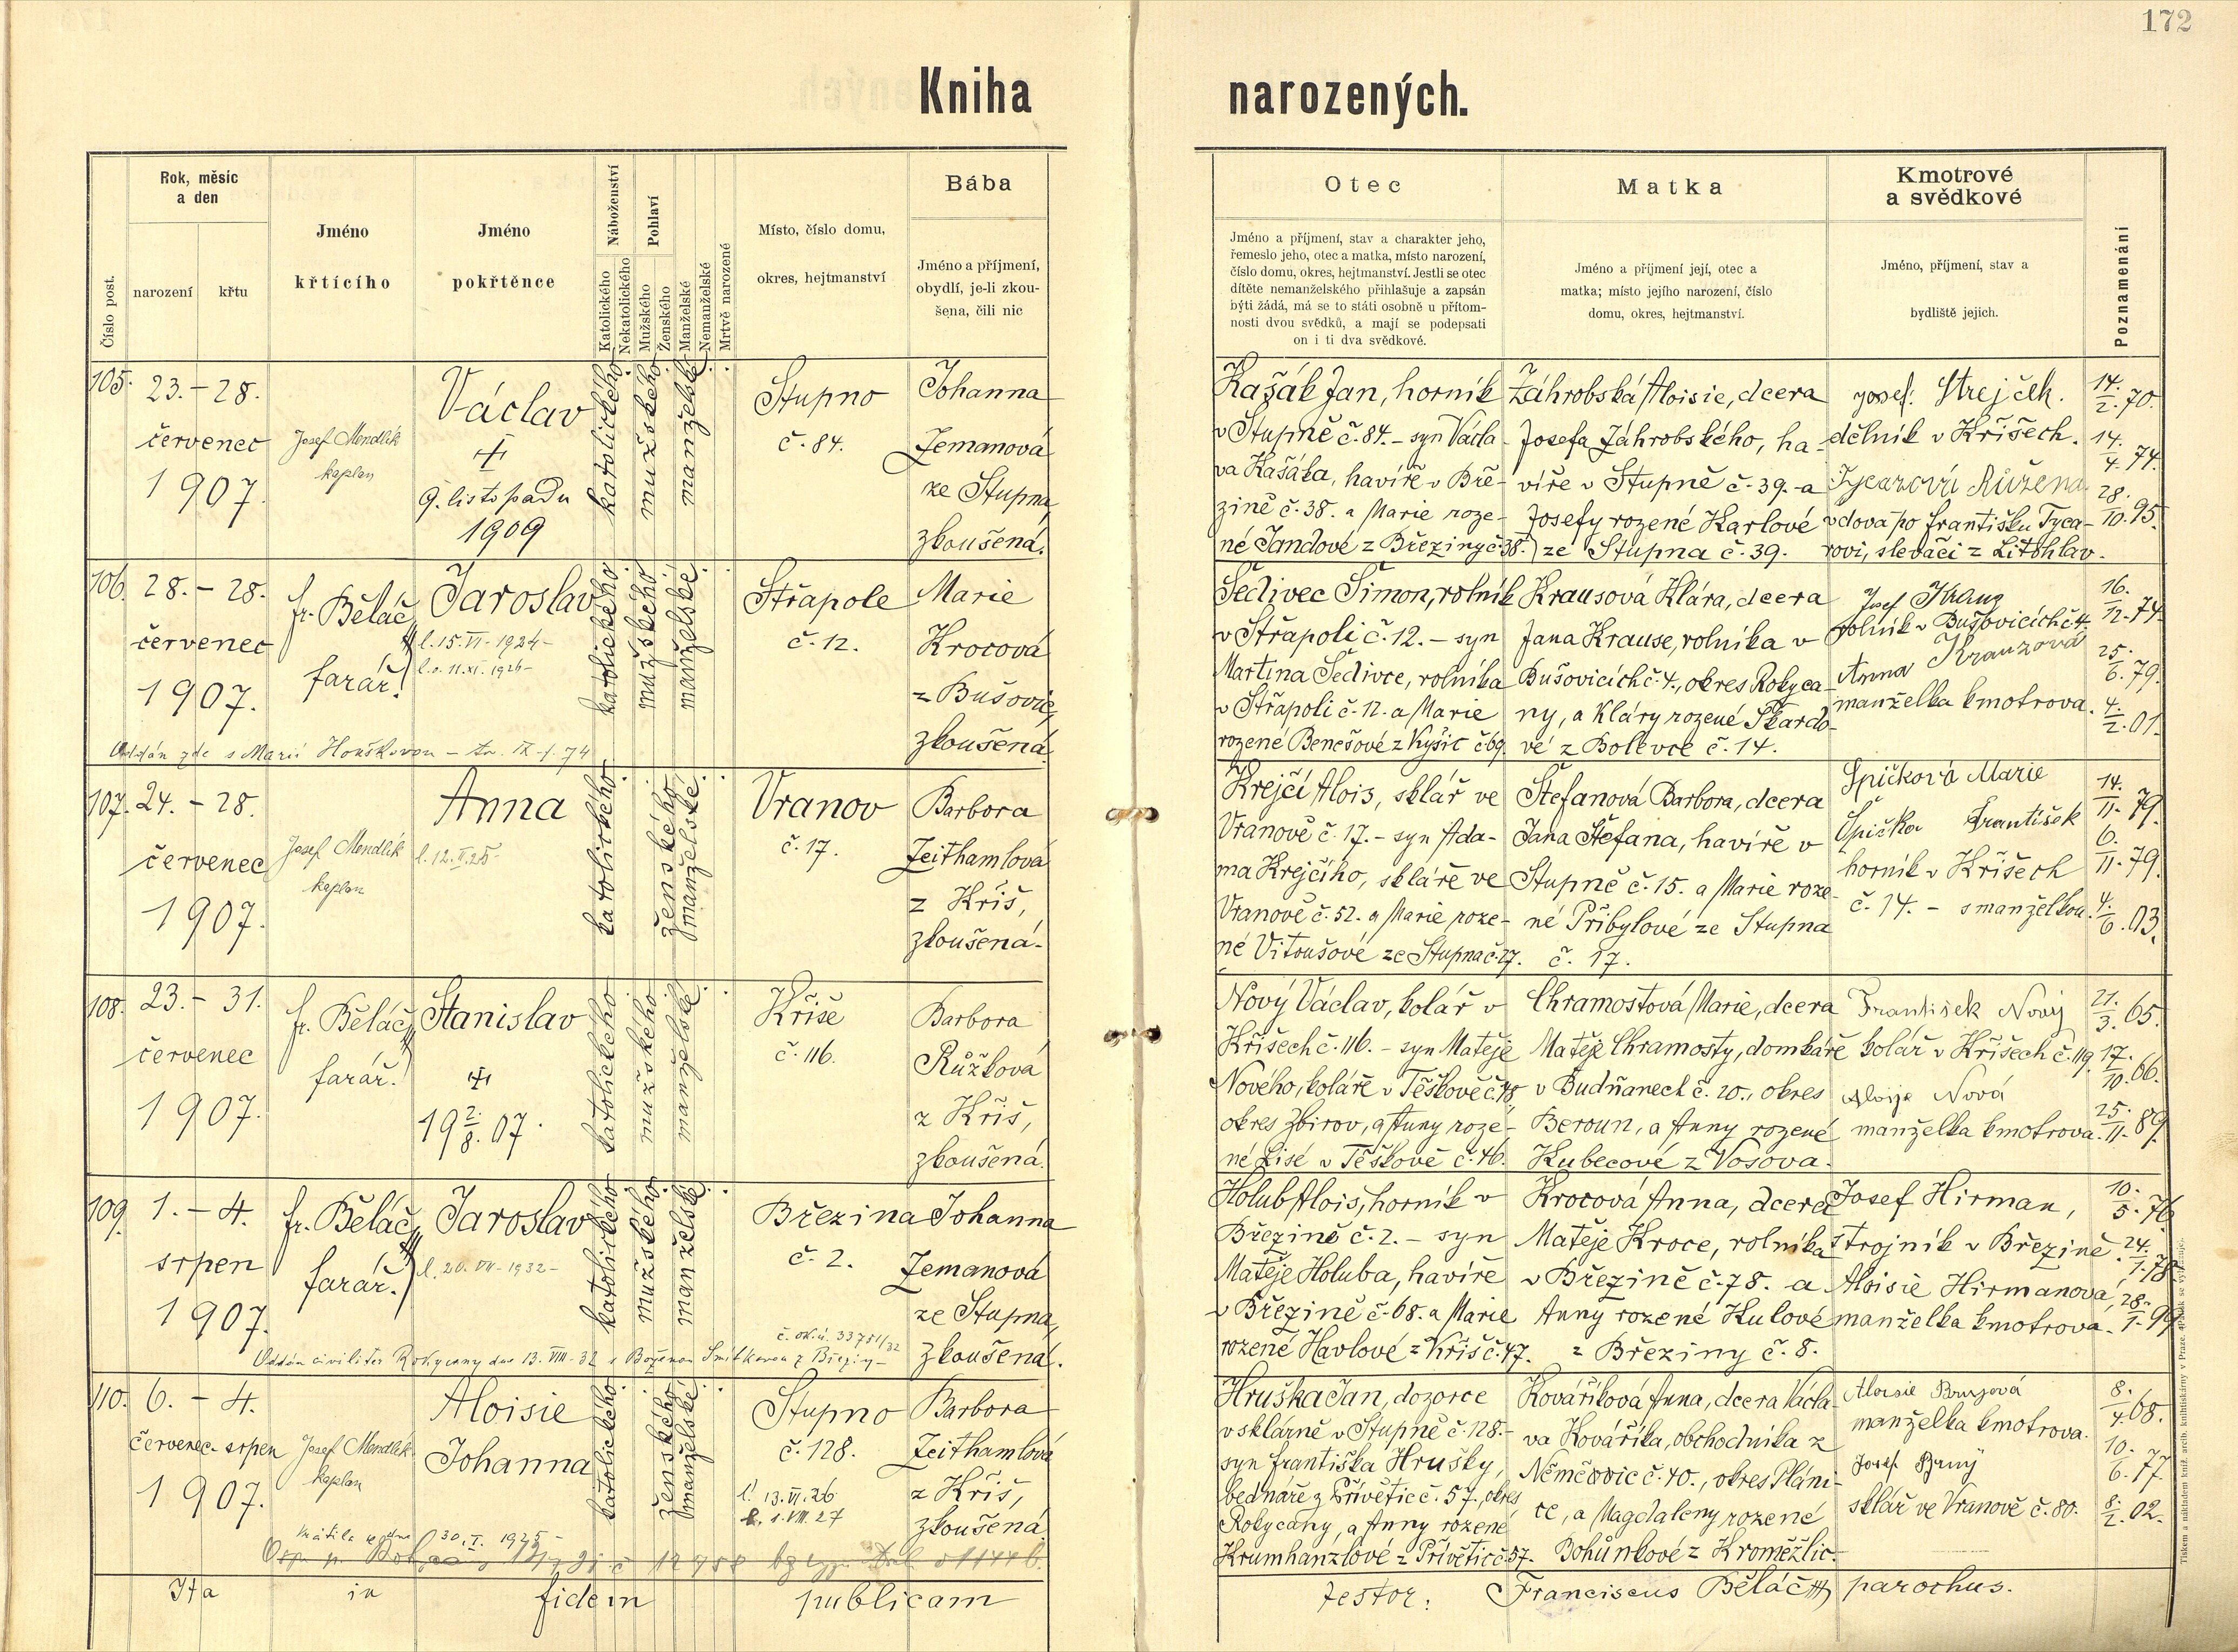 172
Kniha narozených.
Číslo post.
Rok, měsíc
a den
narození
křtu
Jméno
křtícího
Jméno
pokřtěnce
Náboženství
Katolického
Nekatolického
Pohlaví
Mužského
Ženského
Manželské
Nemanželské
Mrtvě narozené
Místo, číslo domu,
okres, hejtmanství
Bába
Jméno a příjmení,
obydlí, je-li zkou-
šena, čili nic
Otec
Jméno a příjmení, stav a charakter jeho,
řemeslo jeho, otec a matka, místo narození,
číslo domu, okres, hejtmanství. Jestli se otec
dítěte nemanželského přihlašuje a zapsán
býti žádá, má se to státi osobně u přítom-
nosti dvou svědků, a mají se podepsati
on i ti dva svědkové.
Matka
Jméno a příjmení její, otec a
matka; místo jejího narození, číslo
domu, okres, hejtmanství.
Kmotrové
a svědkové
Jméno, příjmení, stav a
bydliště jejich.
Poznamenání
105.
23. – 28.
červenec
1907.
Josef Mendlík
kaplan
Václav
+
9. listopadu
1909
katolického
mužského
manželské
Stupno
č. 84.
Johanna
Zemanová
ze Stupna,
zkoušená.
Kašák Jan, horník
v Stupně č. 84. – syn Václa-
va Kašáka, havíře v Bře-
zině č. 38. a Marie roze-
né Jandové z Březiny č. 38.
Záhrobská Aloisie, dcera
Josefa Záhrobského, ha-
víře v Stupně č. 39. a
Josefy rozené Karlové
ze Stupna č. 39.
Josef Strejček.
dělník v Kříšech.
Růžena
vdova po Františku Tyca-
rovi, slevači z Litohlav.
14./2. 70.
14./4. 74.
28./10. 95.
106.
28. – 28.
červenec
1907.
fr. Běláč
farář.
Jaroslav
l. 15. VI. 1924 –
l. o. 11. XI. 1926 –
katolického
mužského
manželské
Střapole
č. 12.
Marie
Krocová
z Bušovic,
zkoušená.
Oddán zde s Marií Houškovou –
Šedivec Šimon, rolník
v Střapoli č. 12. – syn
Martina Šedivce, rolníka
v Střapoli č. 12. a Marie
rozené Benešové z Kyšic č. 69.
Krausová Klára, dcera
Jana Krause, rolníka v
Bušovicích č. 4., okres Rokyca-
ny, a Kláry rozené Škardo-
vé z Bolevce č. 14.
Josef Kraus
rolník v Bušovicích č. 4.
Anna Krausová
manželka kmotrova.
16./12. 74.
25./6. 79.
4./2. 01.
107.
24. – 28.
červenec
1907.
Josef Mendlík
kaplan
Anna
l. 12. II. 25 –
katolického
ženského
manželské
Vranov
č. 17.
Barbora
Zeithamlová
z Kříš,
zkoušená.
Krejčí Alois, sklář ve
Vranově č. 17. – syn Ada-
ma Krejčího, skláře ve
Vranově č. 52. a Marie roze-
né Vitoušové ze Stupna č. 27.
Štefanová Barbora, dcera
Jana Štefana, havíře v
Stupně č. 15. a Marie roze-
né Přibylové ze Stupna
č. 17.
Špičková Marie
Špička František
horník v Kříšech
č. 14. – s manželkou.
14./11. 79.
6./11. 79.
4./6. 03.
108.
23. – 31.
červenec
1907.
fr. Běláč
farář.
Stanislav
+
19 2./8. 07.
katolického
mužského
manželské
Kříše
č. 116.
Barbora
Růžková
z Kříš,
zkoušená.
Nový Václav, kolář v
Kříšech č. 116. – syn Matěje
Nového, koláře v Těškově č. 48,
okres Zbirov, a Anny roze-
né Lisé v Těškově č. 46.
Chramostová Marie, dcera
Matěje Chramosty, domkáře
v Budňanech č. 20., okres
Beroun, a Anny rozené
Kubecové z Vosova.
František Nový
kolář v Kříšech č. 119.
Aloisie Nová
manželka kmotrova.
21./3. 65.
17./10. 66.
25./11. 89.
109.
1. – 4.
srpen
1907.
fr. Běláč
farář.
Jaroslav
l. 20. VII. 1932 –
katolického
mužského
manželské
Březina
č. 2.
Johanna
Zemanová
ze Stupna,
zkoušená.
Oddán civiliter Rokycany dne 13. VIII. 32 s Boženou
Holub Alois, horník v
Březině č. 2. – syn
Matěje Holuba, havíře
v Březině č. 68. a Marie
rozené Havlové z Kříš č. 47.
Krocová Anna, dcera
Matěje Kroce, rolníka
v Březině č. 78. a
Anny rozené Kulové
z Březiny č. 8.
Josef Hirman,
strojník v Březině.
Aloisie Hirmanová,
manželka kmotrova.
10./5. 76.
24./1. 78.
28./1. 99.
110.
6. – 4.
červenec – srpen
1907.
Josef Mendlík
kaplan
Aloisie
Johanna
katolického
ženského
manželské
Stupno
č. 128.
l. 13. VI. 26
1. VIII. 27
Barbora
Zeithamlová
z Kříš,
zkoušená.
30. I. 1925 –
Hruška Jan, dozorce
v sklárně v Stupně č. 128. –
syn Františka Hrušky,
bednáře z Přívětic č. 57., okres
Rokycany, a Anny rozené
Krumhanzlové z Přívětic č. 57.
Kováříková Anna, dcera Václa-
va Kováříka, obchodníka z
Němčovic č. 40., okres Pláni-
ce, a Magdaleny rozené
Bohunkové z Kroměžlic.
Aloisie
manželka kmotrova.
Josef
sklář ve Vranově č. 80.
8./4. 68.
10./6. 77.
8./2. 02.
Ita in fidem publicam
testor: Franciscus Běláč parochus.